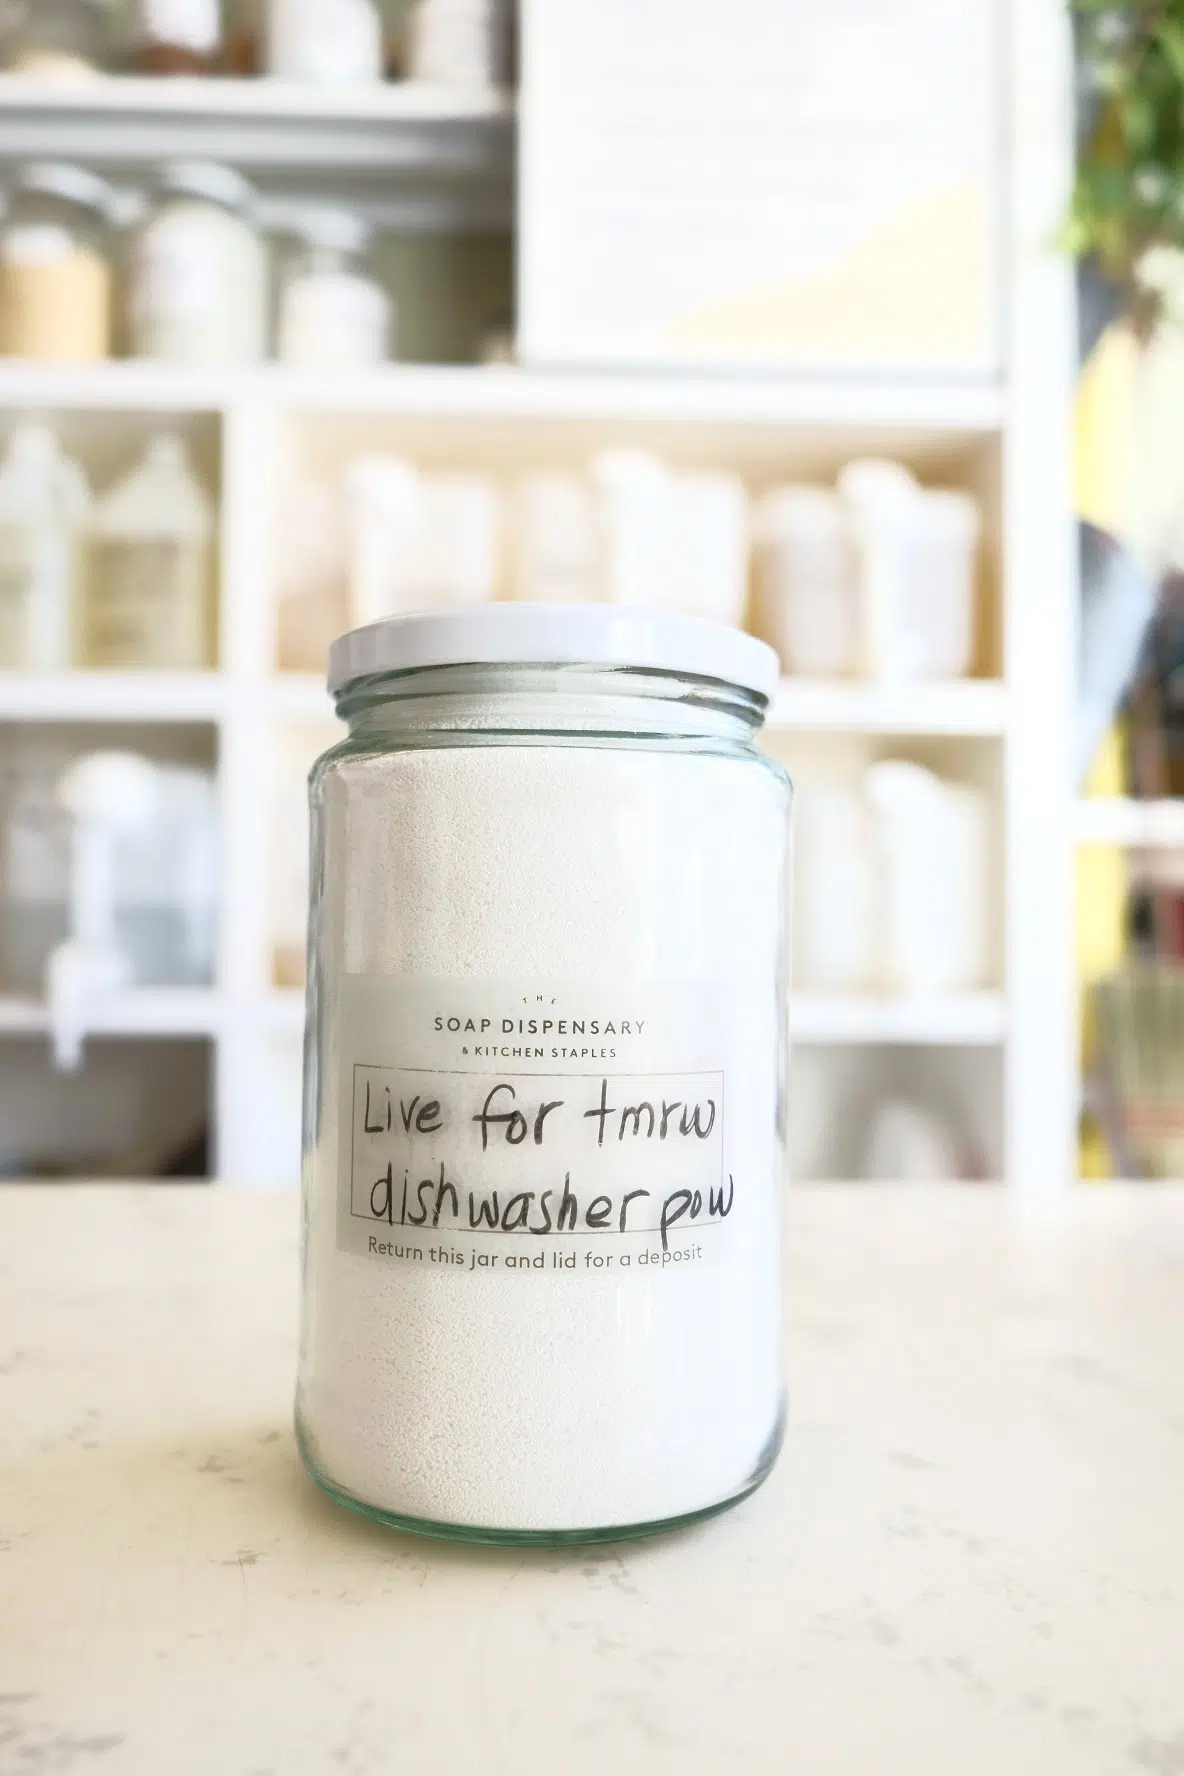 THE
SOAP DISPENSARY
& KITCHEN STAPLES
Live for tmrw
dishwasher pow
Return this jar and lid for a deposit